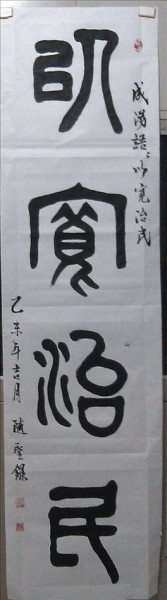 以寬治民
成湯語：以寬治民
乙未年吉月